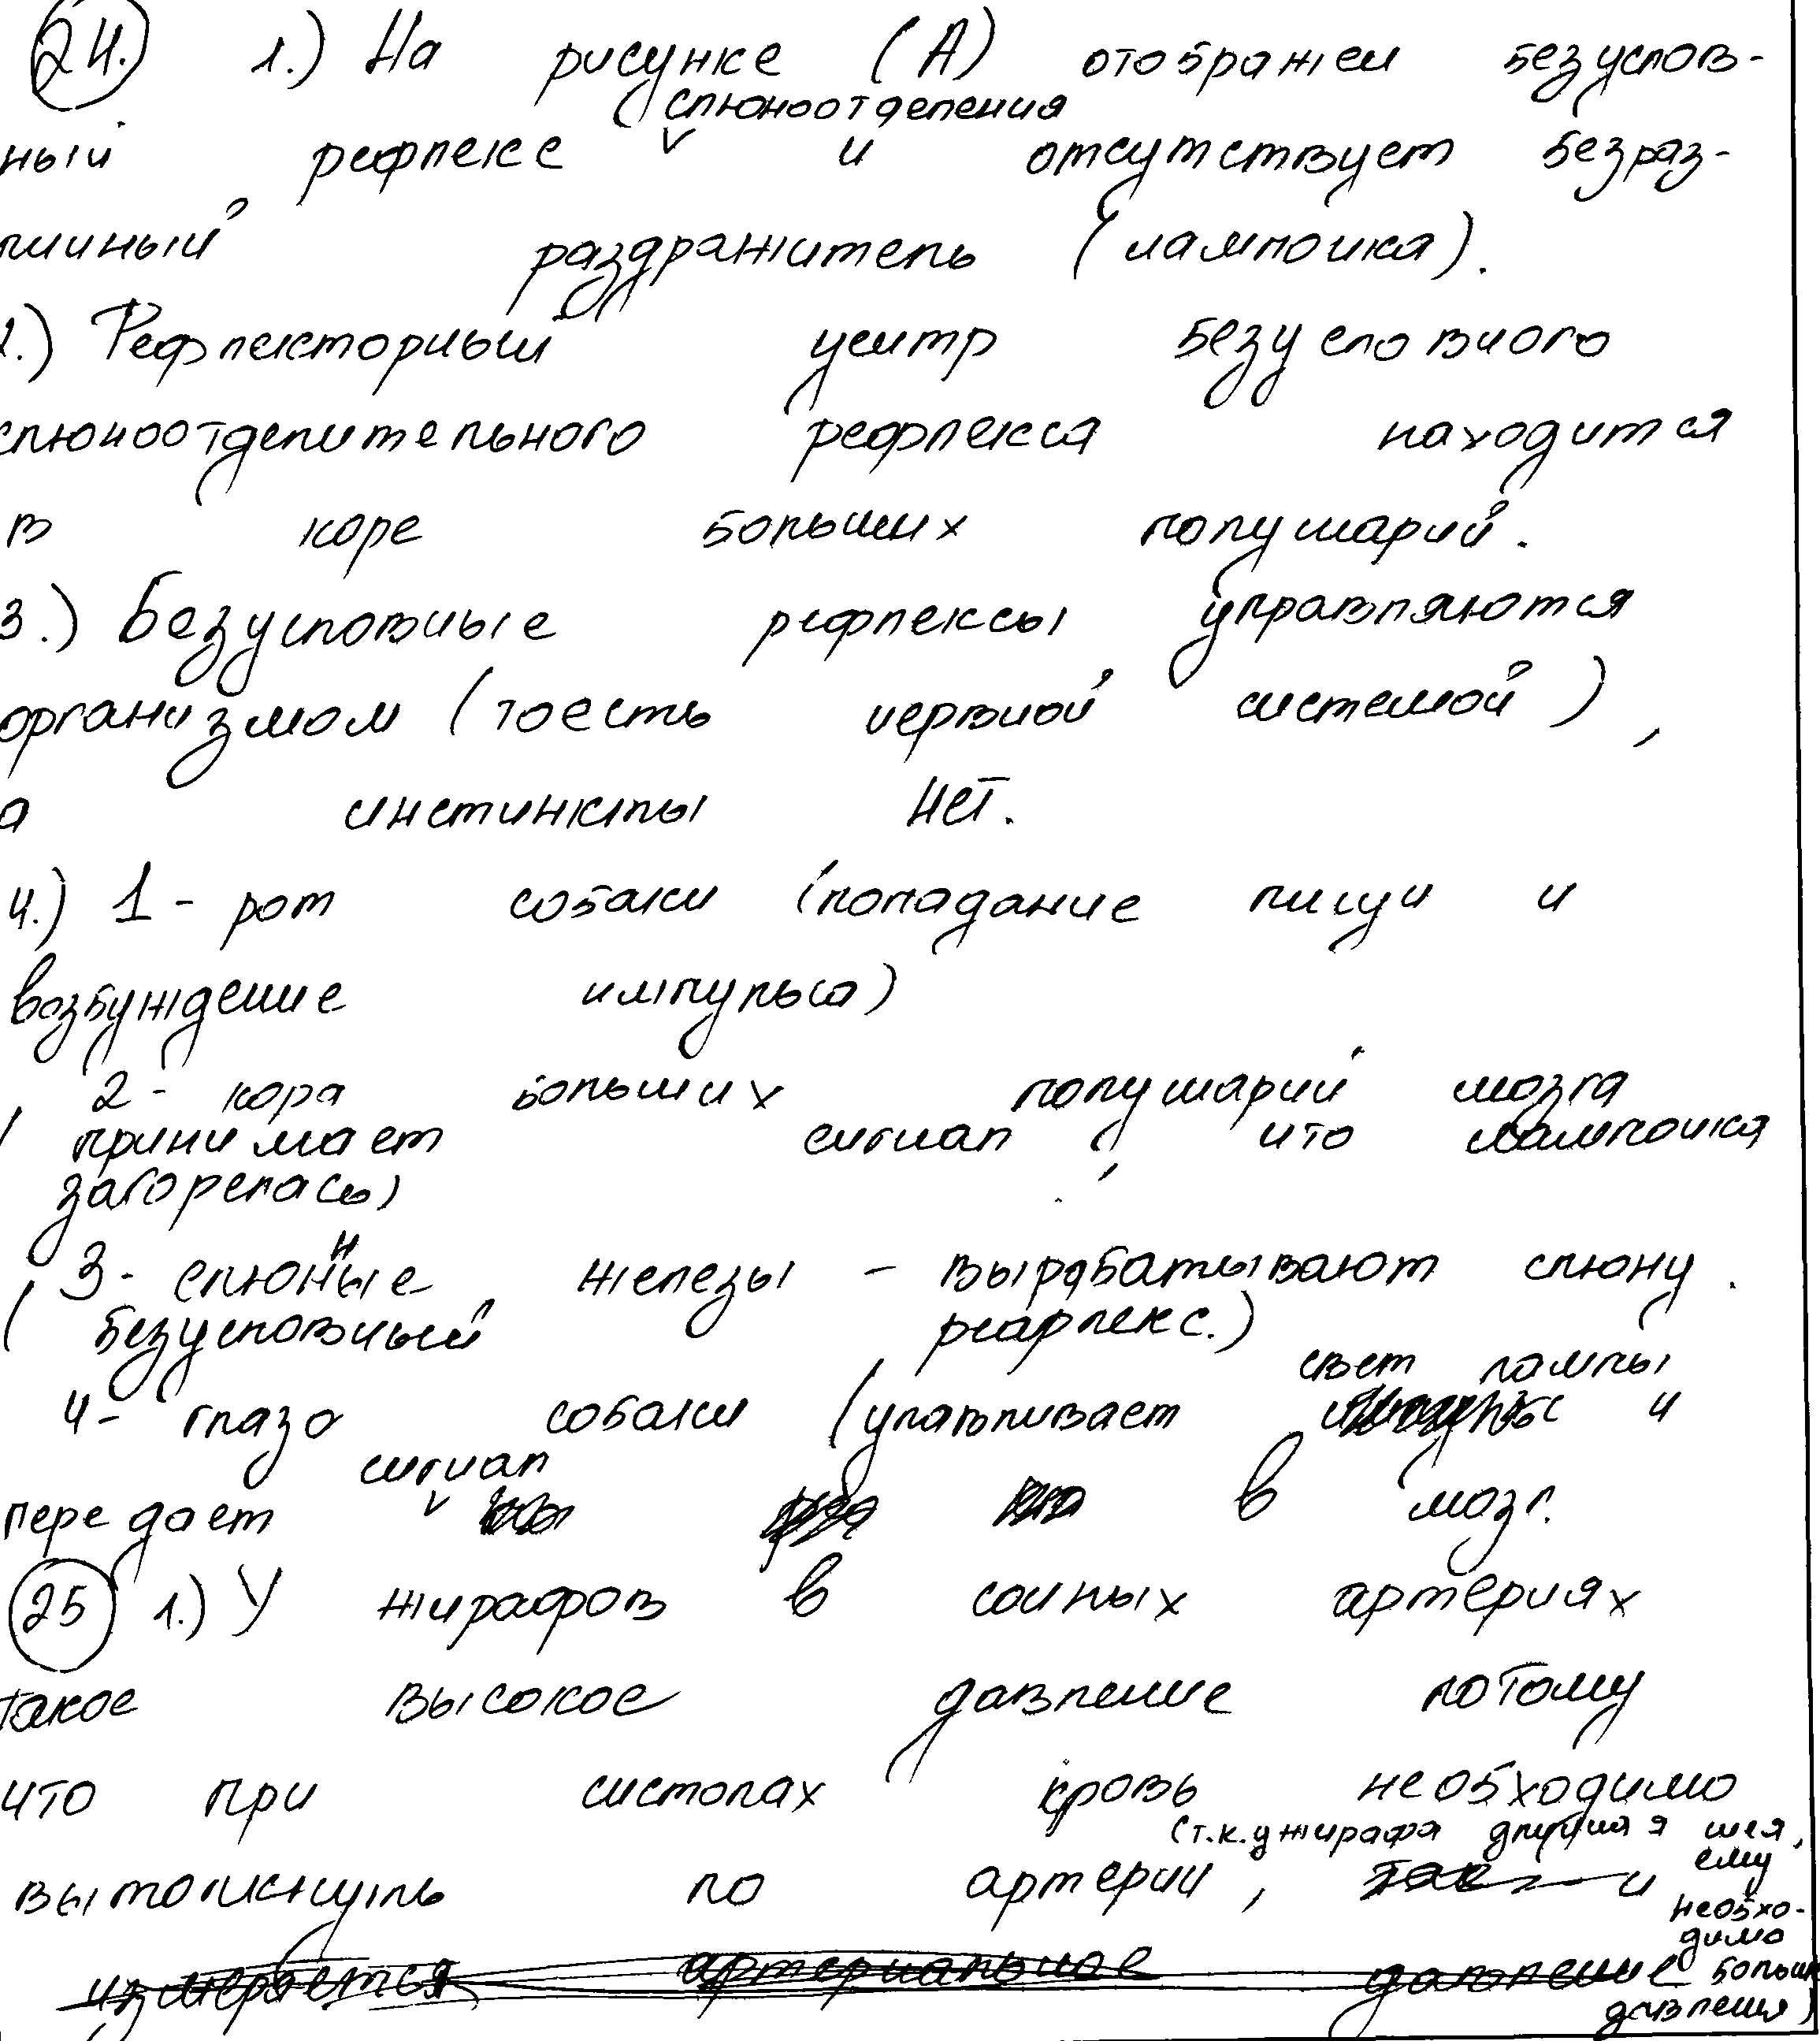 24. 1.) На рисунке (А) отображен безуслов-
(слюноотделения
ный рефлекс и отсутствует безраз-
личный раздражитель (лампочка).
2.) Рефлекторный центр безусловного
слюноотделительного рефлекса находится
в коре больших полушарий.
3.) Безусловные рефлексы управляются
организмом (тоесть нервной системой),
а инстинкты нет.
4.) 1 - рот собаки (попадание пищи и
возбуждение импульса)
2 - кора больших полушарий мозга
( принимает сигнал, что лампочка
загорелась)
3 - слюнные железы - вырабатывают слюну.
( безусловный рефлекс.)
свет лампы
4 - глаза собаки (улавливает и
сигнал
передает в мозг.
25 1.) У жирафов в сонных артериях
такое высокое давление потому
что при систолах кровь необходимо
(т.к. у жирафа длинная шея,
вытолкнуть по артерии, и ему
необхо-
димо
измеряется артериальное давление больше
давления)